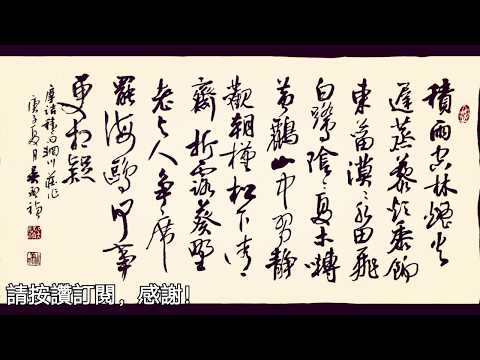 積雨空林煙火
遲蒸藜炊黍餉
東菑漠〻水田飛
白鷺陰〻夏木囀
黃鸝山中習靜
觀朝槿松下清
齋折露葵野
老與人爭席
罷海鷗何事
更相疑
摩詰積雨輞川莊作
庚子夏月吳啟禎
請按讚訂閱，感謝!